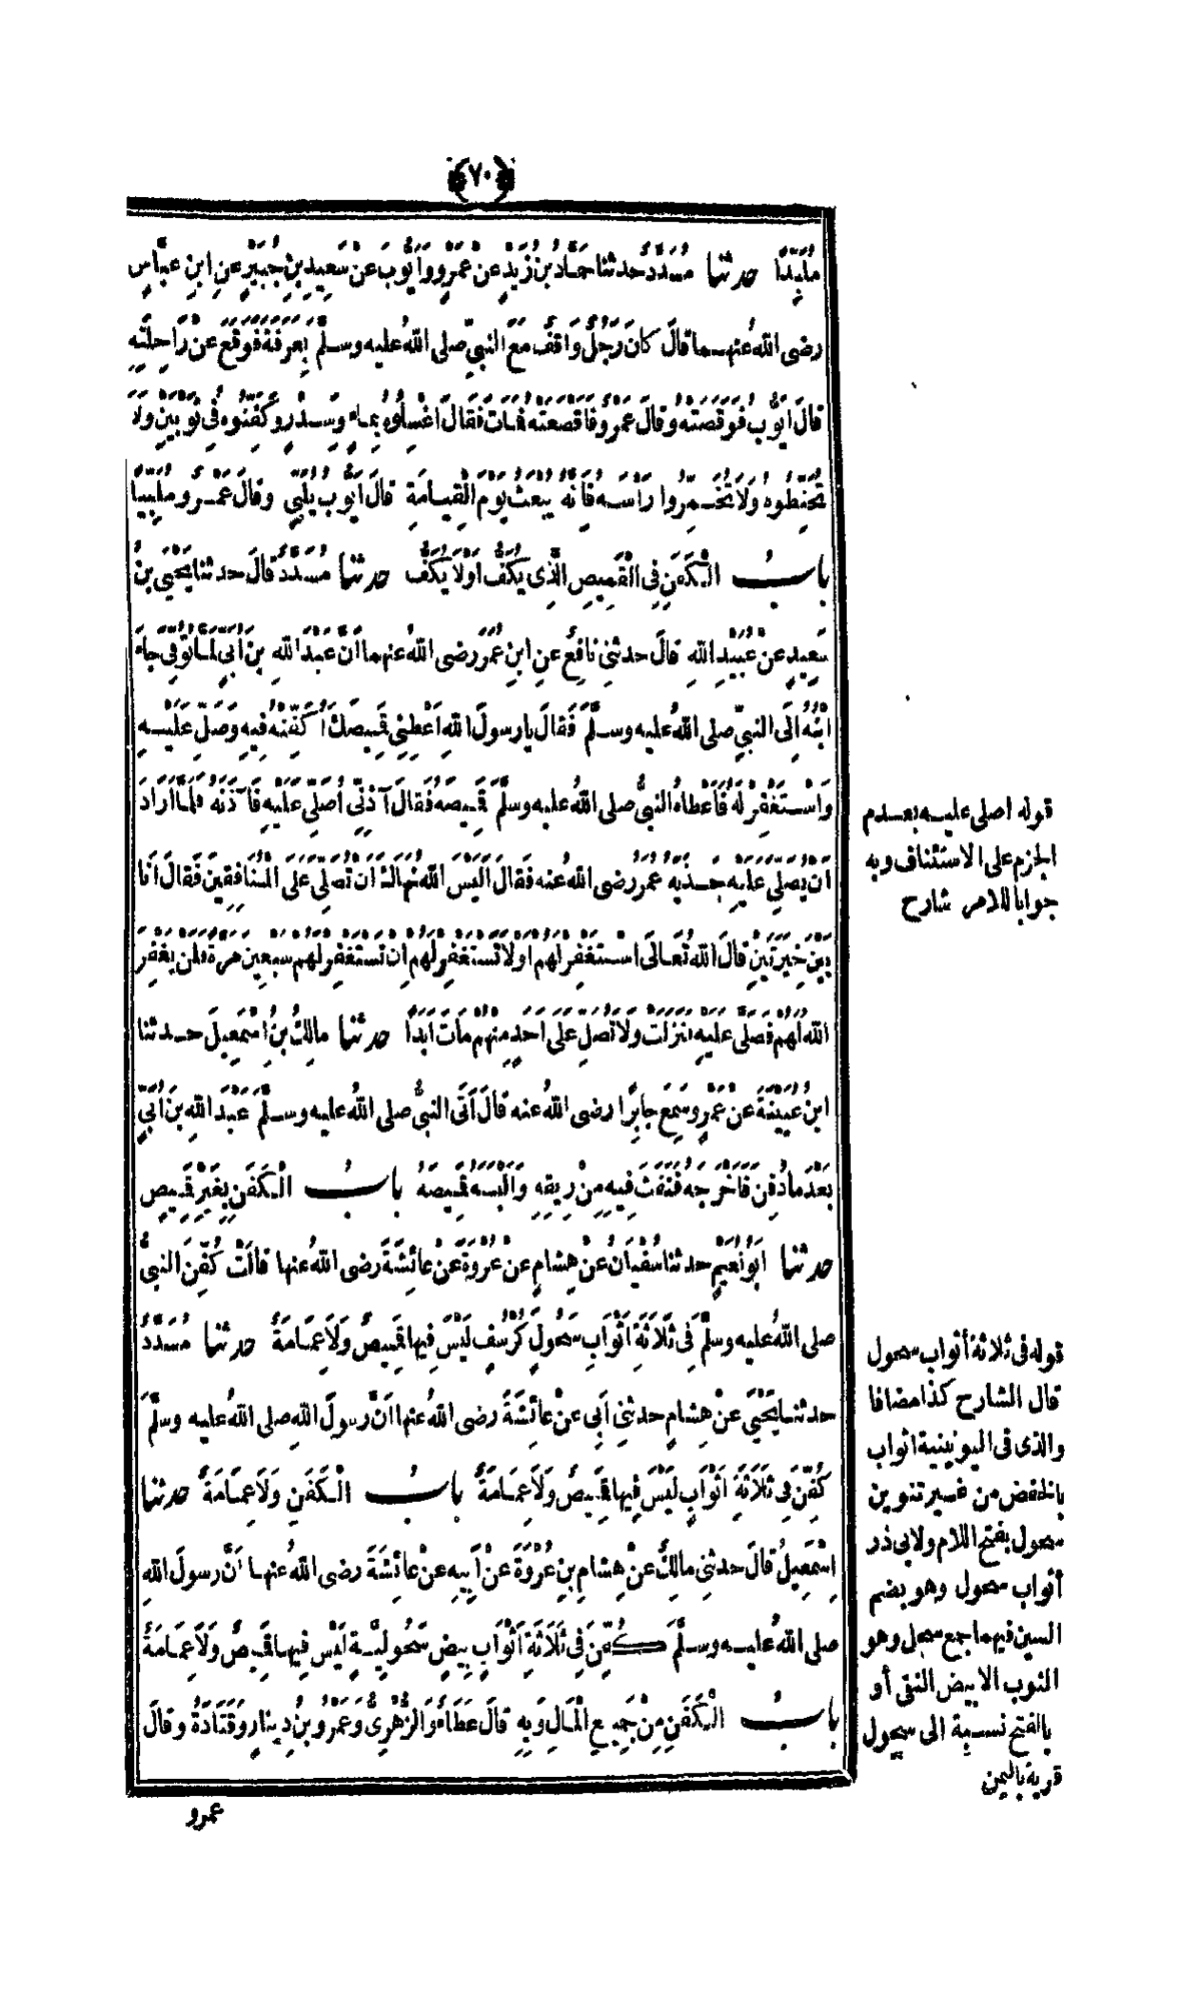 ﴿٧٠﴾
مُلَبِّدًا حدثنا مُسَدَّدٌ حدثنا حَمَّادُ بنُ زَيْدٍ عَنْ عَمْرٍو وَأَيُّوبَ عَنْ سَعِيدِ بنِ جُبَيْرٍ عَنِ ابنِ عَبَّاسٍ
رضى اللهُ عنهما قالَ كانَ رَجُلٌ وَاقِفٌ مَعَ النبيِّ صلى اللهُ عليه وسلَّمَ بِعَرَفَةَ فَوَقَعَ عَنْ رَاحِلَتِهِ
قالَ أيُّوبُ فَوَقَصَتْهُ وَقالَ عَمْرٌو فَأَقْصَعَتْهُ فَمَاتَ فَقَالَ اغْسِلُوهُ بِمَاءٍ وَسِدْرٍ وَكَفِّنُوهُ فِى ثَوْبَيْنِ وَلَا
تُحَنِّطُوهُ وَلَا تُخَمِّرُوا رَأْسَهُ فَإِنَّهُ يُبْعَثُ يَوْمَ الْقِيامَةِ قالَ أيُّوبُ يُلَبِّي وَقالَ عَمْرٌو مُلَبِّيًا
بابُ الْكَفَنِ فِى الْقَمِيصِ الَّذِى يُكَفُّ أوْ لَا يُكَفُّ حدثنا مُسَدَّدٌ قالَ حدثنا يَحْيَى بنُ
سَعِيدٍ عَنْ عُبَيْدِ اللهِ قالَ حدثنى نافِعٌ عَنِ ابنِ عُمَرَ رضى اللهُ عنهما أنَّ عَبْدَ اللهِ بنَ أُبَيٍّ لَمَّا تُوُفِّيَ جاءَ
ابْنُهُ إلَى النبيِّ صلى اللهُ عليه وسلَّمَ فَقالَ يا رسولَ اللهِ أعْطِنِى قَمِيصَكَ أُكَفِّنْهُ فِيهِ وَصَلِّ عَلَيْهِ
وَاسْتَغْفِرْ لَهُ فَأعْطاهُ النبيُّ صلى اللهُ عليه وسلَّمَ قَمِيصَهُ فَقالَ آذِنِّى أُصَلِّى عَلَيْهِ فَآذَنَهُ فَلَمَّا أرَادَ
أنْ يُصَلِّيَ عليهِ جَذَبَهُ عُمَرُ رضى اللهُ عنه فَقالَ ألَيْسَ اللهُ نَهَاكَ أنْ تُصَلِّيَ عَلَى الْمُنَافِقِينَ فَقالَ أنا
بَيْنَ خِيرَتَيْنِ قالَ اللهُ تَعَالَى اسْتَغْفِرْ لَهُمْ أوْ لَا تَسْتَغْفِرْ لَهُمْ إنْ تَسْتَغْفِرْ لَهُمْ سَبْعِينَ مَرَّةً فَلَنْ يَغْفِرَ
اللهُ لَهُمْ فَصَلَّى عَلَيْهِ فَنَزَلَتْ وَلَا تُصَلِّ عَلَى أحَدٍ مِنْهُمْ مَاتَ أبَدًا حدثنا مالِكُ بنُ إسْمٰعِيلَ حدثنا
ابنُ عُيَيْنَةَ عَنْ عَمْرٍو سَمِعَ جابِرًا رضى اللهُ عنه قالَ أتَى النبيُّ صلى اللهُ عليه وسلَّمَ عَبْدَ اللهِ بنَ أُبَيٍّ
بَعْدَ مادُفِنَ فَأخْرَجَهُ فَنَفَثَ فِيهِ مِنْ رِيقِهِ وَألْبَسَهُ قَمِيصَهُ بابُ الْكَفَنِ بِغَيْرِ قَمِيصٍ
حدثنا أبُو نُعَيْمٍ حدثنا سُفْيَانُ عَنْ هِشامٍ عَنْ عُرْوَةَ عَنْ عائِشَةَ رضى اللهُ عنها قالَتْ كُفِّنَ النبيُّ
صلى اللهُ عليه وسلَّمَ فِى ثَلَاثَةِ أثْوَابِ سَحُولٍ كُرْسُفٍ لَيْسَ فِيها قَمِيصٌ وَلَا عِمَامَةٌ حدثنا مُسَدَّدٌ
حدثنا يَحْيَى عَنْ هِشامٍ حدثنى أبِى عَنْ عائِشَةَ رضى اللهُ عنها أنَّ رسولَ اللهِ صلى اللهُ عليه وسلَّمَ
كُفِّنَ فِى ثَلَاثَةِ أثْوَابٍ لَيْسَ فِيها قَمِيصٌ وَلَا عِمَامَةٌ بابُ الْكَفَنِ وَلَا عِمَامَةٌ حدثنا
إسْمٰعِيلُ قالَ حدثنى مالِكٌ عَنْ هِشامِ بنِ عُرْوَةَ عَنْ أبِيهِ عَنْ عائِشَةَ رضى اللهُ عنها أنَّ رسولَ اللهِ
صلى اللهُ عليه وسلَّمَ كُفِّنَ فِى ثَلَاثَةِ أثْوَابٍ بِيضٍ سَحُولِيَّةٍ لَيْسَ فِيها قَمِيصٌ وَلَا عِمَامَةٌ
بابُ الْكَفَنِ مِنْ جَمِيعِ الْمَالِ وَبِهِ قالَ عَطَاءٌ وَالزُّهْرِىُّ وَعَمْرُو بنُ دِينارٍ وَقَتَادَةُ وَقالَ
عمرو
قوله اصلى عليه بعدم
الجزم على الاستئناف وبه
جوابا للامر شارح
قوله فى ثلاثة أثواب سحول
قال الشارح كذا مضافا
والذى فى اليونينية اثواب
بالخفض من غير تنوين
سحول بفتح اللام ولابى ذر
أثواب سحول وهو بضم
السين فيهما جمع سحل وهو
الثوب الابيض النقى أو
بالفتح نسبة الى سحول
قرية باليمن